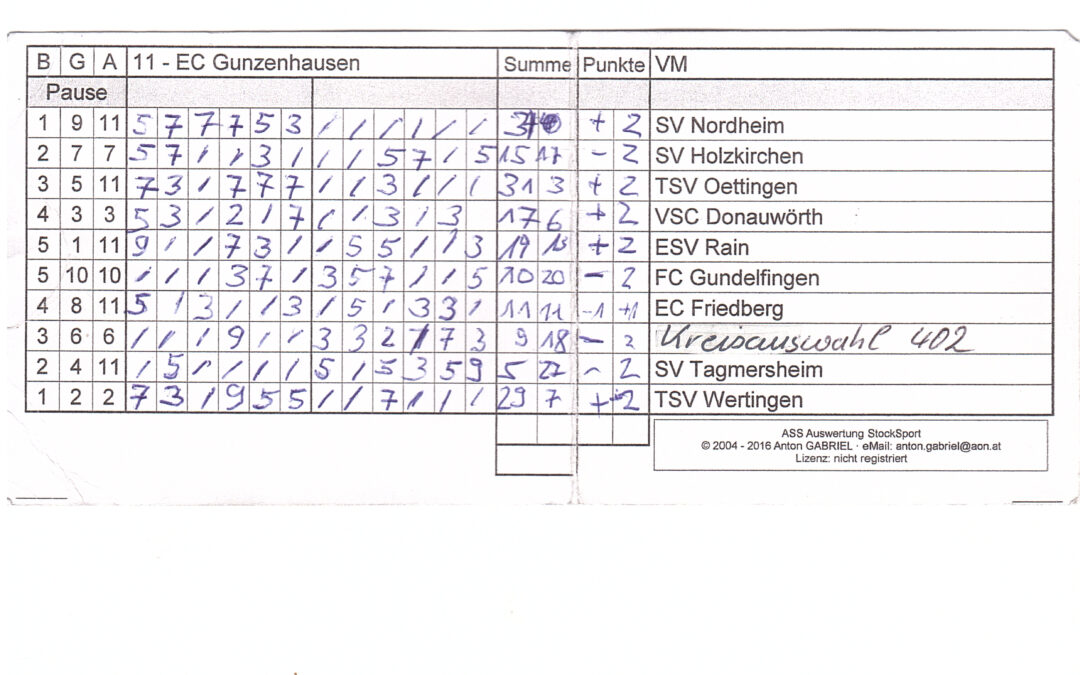 B G A 11 - EC Gunzenhausen Summe Punkte VM
Pause
1 9 11 5 7 7 7 5 3 / / / / / / + 2 SV Nordheim
2 7 7 5 7 / / 3 / / / 5 7 / 5 15 17 - 2 SV Holzkirchen
3 5 11 7 3 / 7 7 7 / / 3 / / / 31 3 + 2 TSV Oettingen
4 3 3 5 3 / 2 / 7 / / 3 / 3 17 6 + 2 VSC Donauwörth
5 1 11 9 / / 7 3 / / 5 5 / / 3 19 13 + 2 ESV Rain
5 10 10 / / / 3 7 / 3 5 7 / / 5 10 20 - 2 FC Gundelfingen
4 8 11 5 / 3 / / 3 / 5 / 3 3 / 11 11 -1 +1 EC Friedberg
3 6 6 / / / 9 / / 3 3 2 7 3 9 18 - 2 Kreisauswahl 402
2 4 11 / 5 / / / / 5 / 5 3 5 9 5 27 - 2 SV Tagmersheim
1 2 2 7 3 / 9 5 5 / / 7 / / / 29 7 + 2 TSV Wertingen
ASS Auswertung StockSport
© 2004 - 2016 Anton GABRIEL · eMail: anton.gabriel@aon.at
Lizenz: nicht registriert